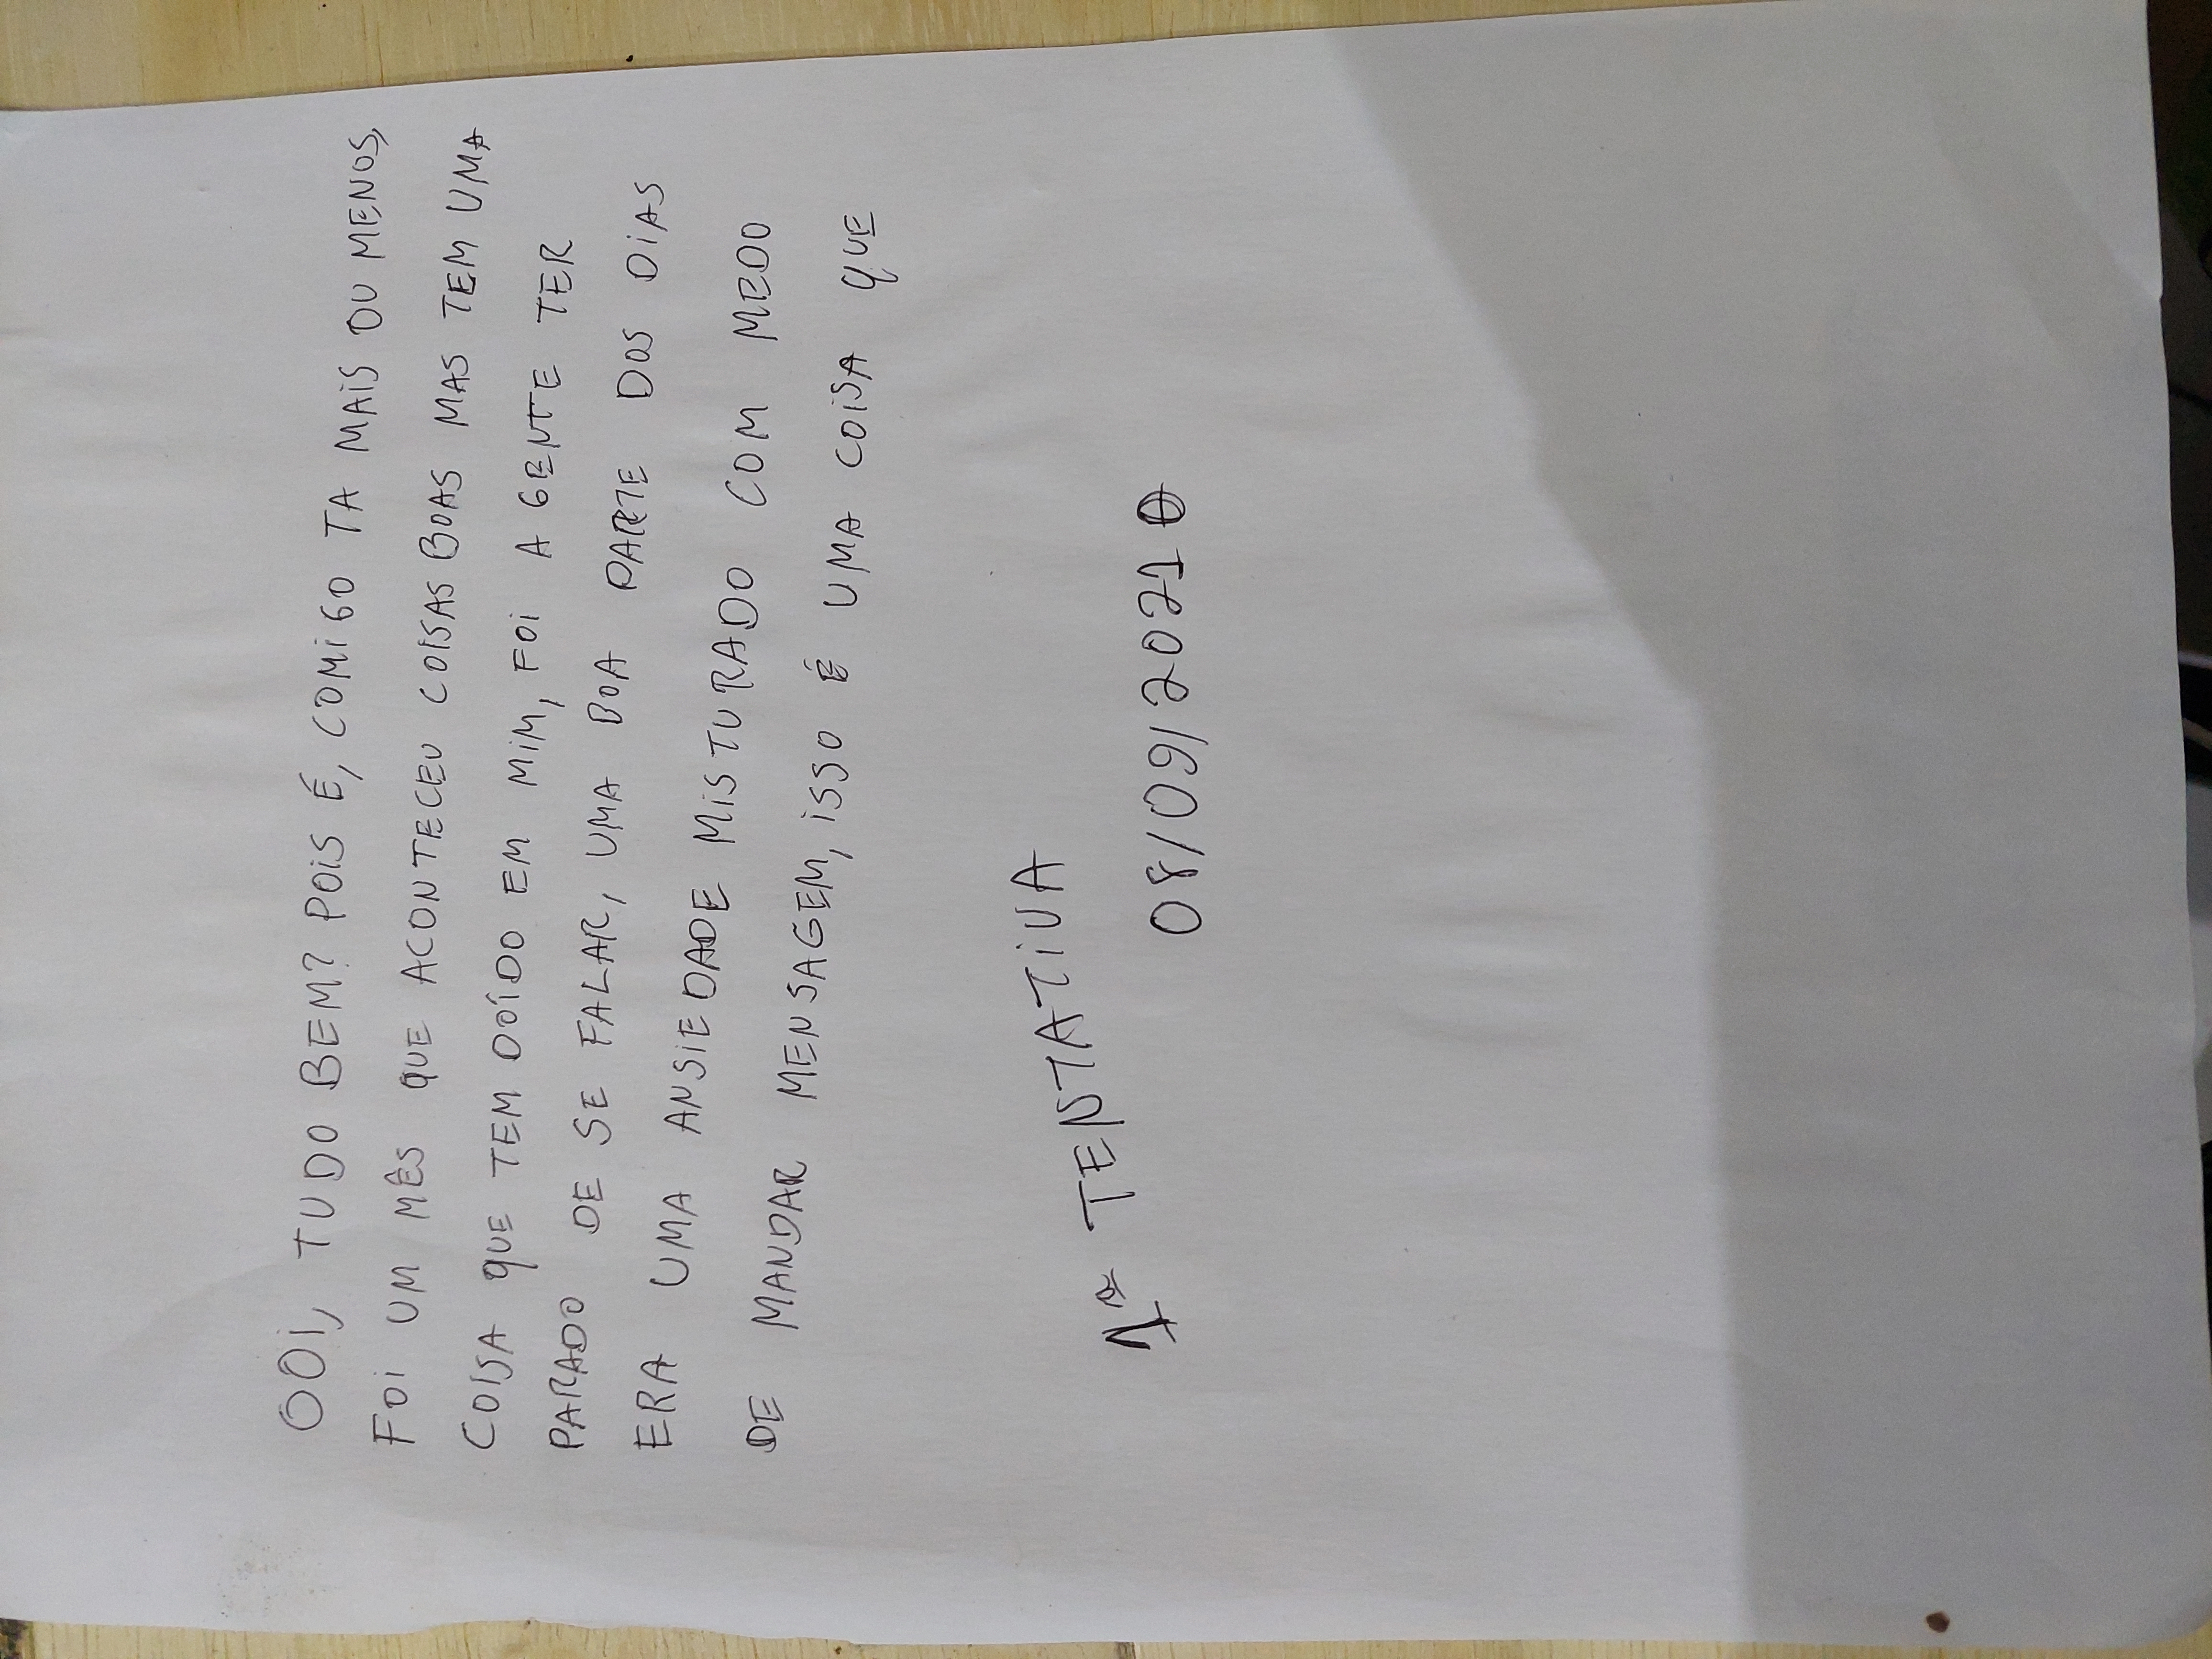 OOI, TUDO BEM? POIS É, COMIGO TA MAIS OU MENOS,
FOI UM MÊS QUE ACONTECEU COISAS BOAS MAS TEM UMA
COISA QUE TEM DOÍDO EM MIM, FOI A GENTE TER
PARADO DE SE FALAR, UMA BOA PARTE DOS DIAS
ERA UMA ANSIEDADE MISTURADO COM MEDO
DE MANDAR MENSAGEM, ISSO É UMA COISA QUE
1ª TENTATIVA
08/09/2021